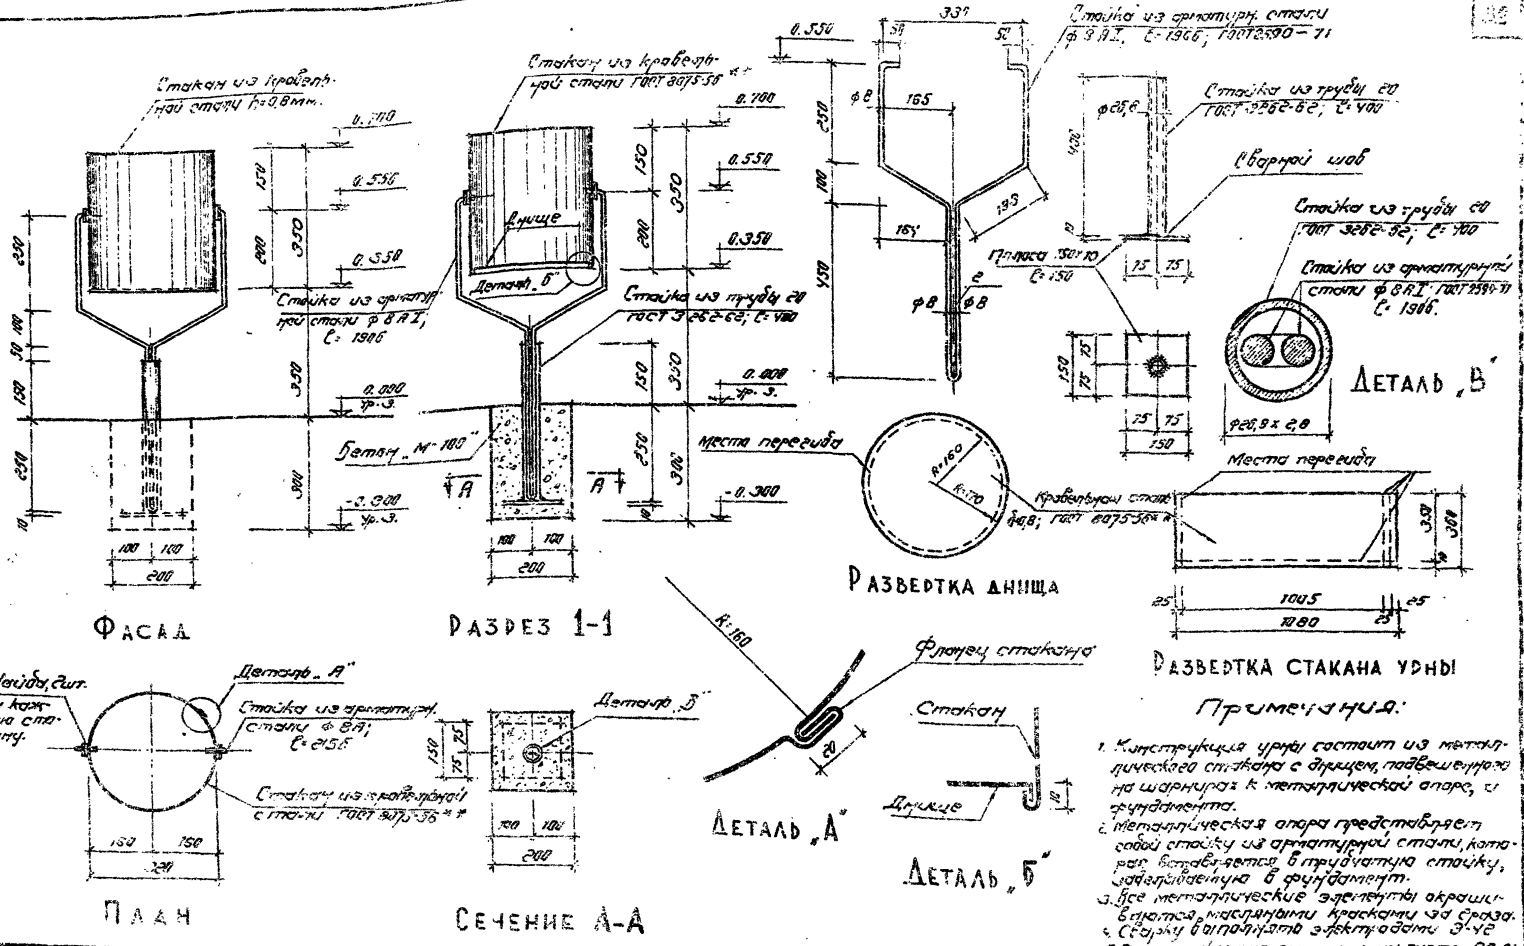 Стакан из кровель-
ной стали h=0,8мм.
0.700
0.550
0.350
150
200
350
250
100
50
150
250
10
350
300
0.000
ур. з.
-0.300
ур. з.
100 100
200
Фасад
Стакан из кровель-
ной стали ГОСТ 8075-56**
0.700
0.550
0.350
150
200
350
Днище
Деталь „Б"
Стойка из арматур-
ной стали ф 8 А I,
ℓ= 1906
Стойка из трубы 20
ГОСТ 3262-62; ℓ= 400
150
350
250
300
10
0.000
ур. з.
-0.300
Бетон „М-100"
А А
100 100
200
Разрез 1-1
337
50 50
0.550
Стойка из арматурн. стали
ф 8 А I, ℓ=1906; ГОСТ 2590-71
ф8 165
250
100
450
193
164
2
ф8 ф8
ф26,8
400
10
Стойка из трубы 20
ГОСТ 3262-62; ℓ= 400
Сварной шов
Полоса 150×10
ℓ= 150
75 75
150
75
75
75 75
150
Стойка из трубы 20
ГОСТ 3262-62; ℓ= 400
Стойка из арматурной
стали ф 8 А I ГОСТ 2590-71
ℓ= 1906.
ф26,8 × 2,8
Деталь „В"
Места перегиба
R=160
R=170
Кровельная сталь
δ=0,8; ГОСТ 8075-56**
Развертка днища
Места перегиба
350
360
10
25 1005 25
25
1080
Развертка стакана урны
Шайба, 2шт.
каж-
ну.
Деталь „А"
Стойка из арматурн.
стали ф 8 А;
ℓ= 2156
Стакан из кровельной
стали ГОСТ 8075-56**
160 160
320
План
Деталь „В"
150
75
75
100 100
200
Сечение А-А
R=160
Фланец стакана
20
Деталь „А"
Стакан
Днище
10
Деталь „Б"
Примечания:
1. Конструкция урны состоит из метал-
лического стакана с днищем, подвешенного
на шарнирах к металлической опоре, и
фундамента.
2. Металлическая опора представляет
собой стойку из арматурной стали, кото-
рая вставляется в трубчатую стойку,
заделываемую в фундамент.
3. Все металлические элементы окраши-
ваются масляными красками за 2 раза.
4. Сварку выполнять электродами Э-42